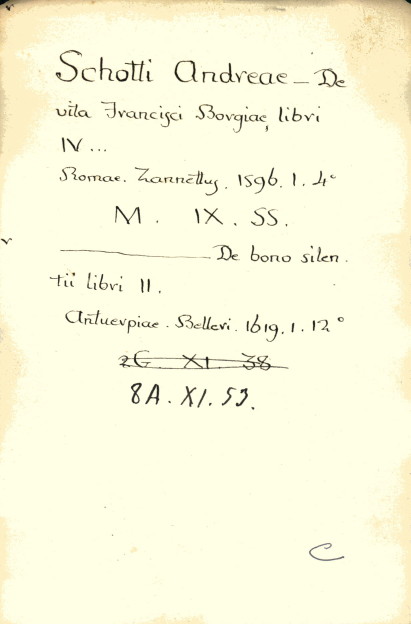 Schotti Andreae — De
vita Francisci Borgiae, libri
IV...
Romae. Zannettus. 1596. 1. 4°
M. IX. SS.
——— De bono silen.
tii libri II.
Antuerpiae. Belleri. 1619. 1. 12°
2G. XI. 38
8A. XI. 53.
C